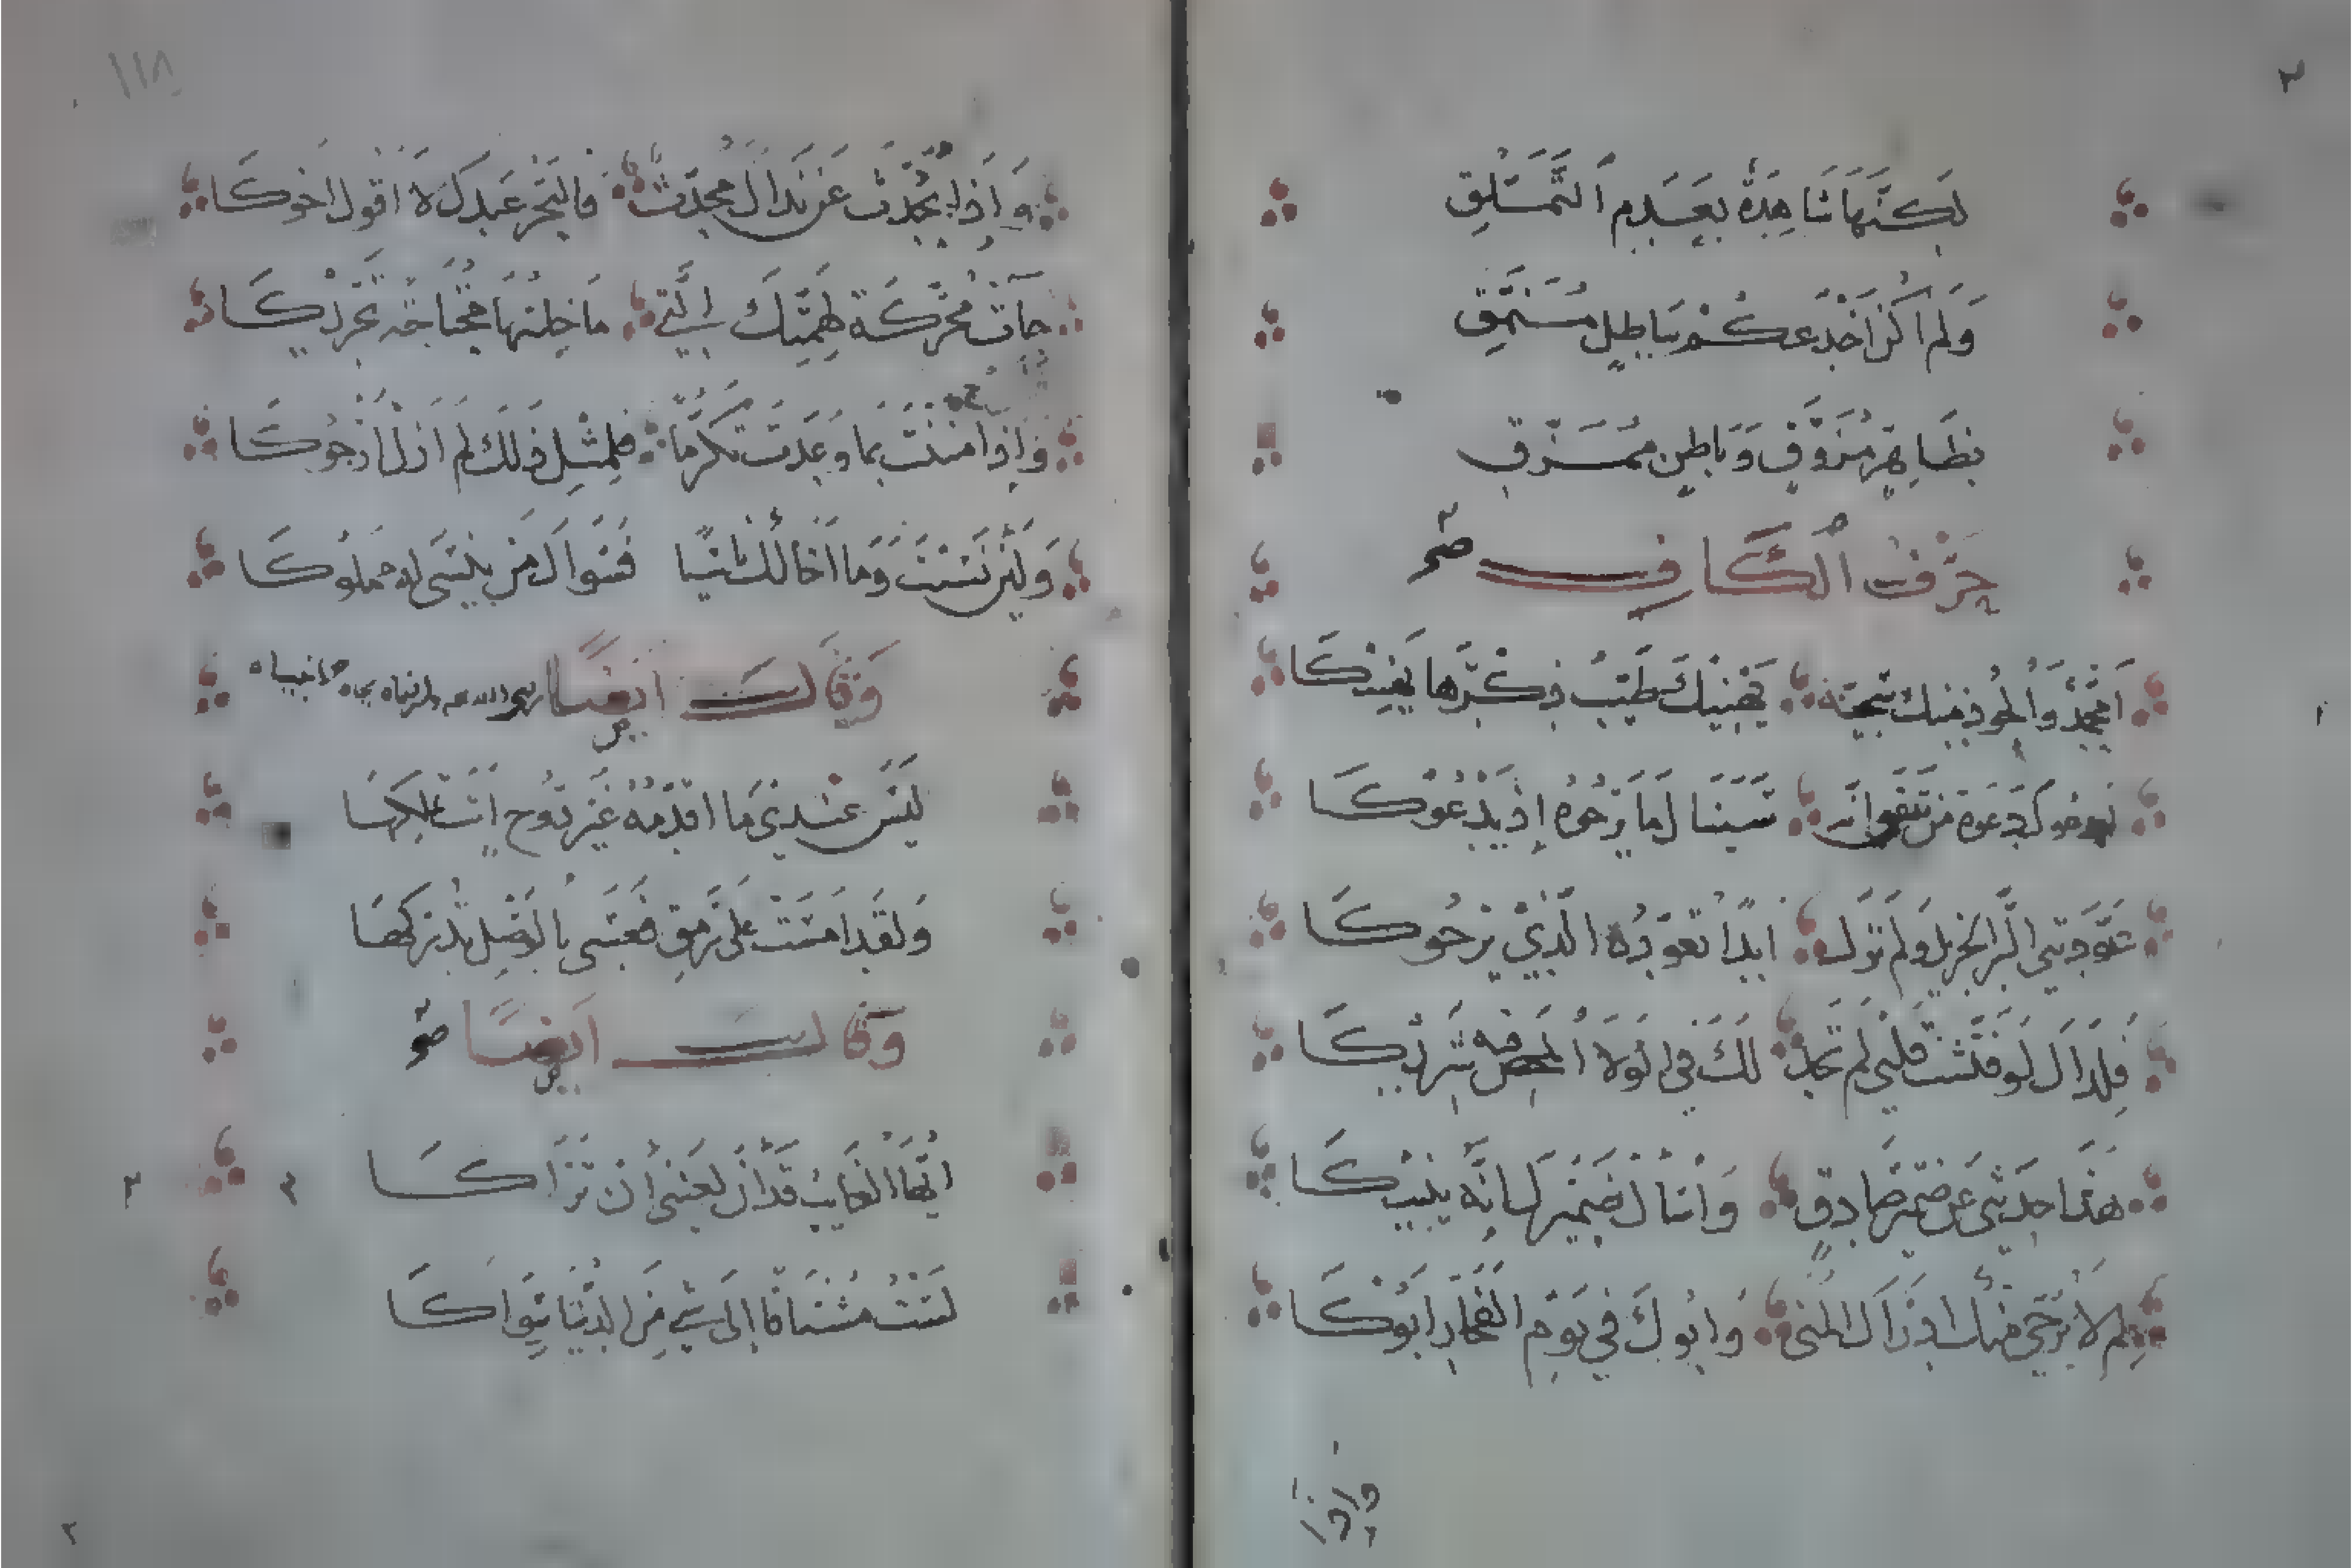 لكنها شاهدة بعدم التملق
ولم اكن اخدعكم بباطل منمق
بظاهر مزوق وباطن ممزق
حرف الكاف
امجد والجود منك سجية يهنيك طيب ذكرها يهنيكا
دعوة من
لما ترجوه اذ يدعوكا
عودتني البر الجزيل ولم تزل ابدا تعوده الذي يرجوكا
فلذاك لو فتشت قلبي لم تجد لك في الولا المحض فيه شريكا
هذا حديثي عن ضمير صادق واسال ضميرك انه ينبيكا
لم لا يرجى منك ادراك المنى وابوك في يوم الفخار ابوكا
واذا
١١٨
واذا تحدث عن نداك محدث فالبحر عبدك لا اقول اخوكا
جات محركة لهمتك التي ما خلتها محتاجة تحريكا
واذا مننت بما وعدت تكرما فلمثل ذلك لم ازل ارجوكا
ولئن نسيت وما اخالك ناسيا فسواك من ينسى له مملوكا
وقال ايضا
ليس عندي ما اقدمه غير روح انت تملكها
ولقد امست على رمق فعسى بالوصل تدركها
وقال ايضا
ايها الغايب قد ان لعيني ان تراكا
لست مشتاقا الى شي من الدنيا سواكا